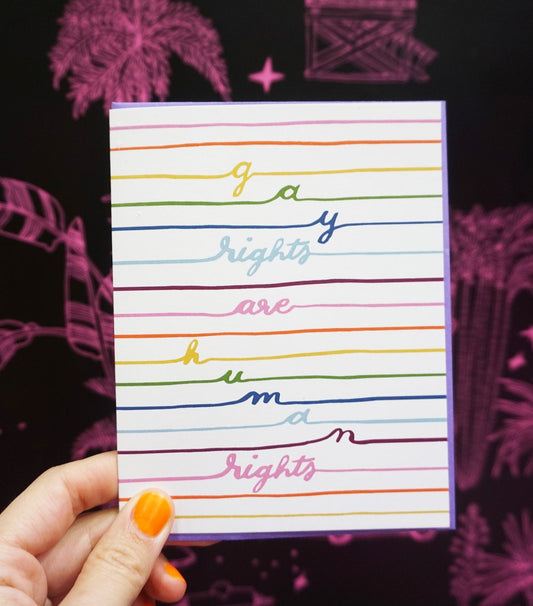 gay
rights
are
human
rights